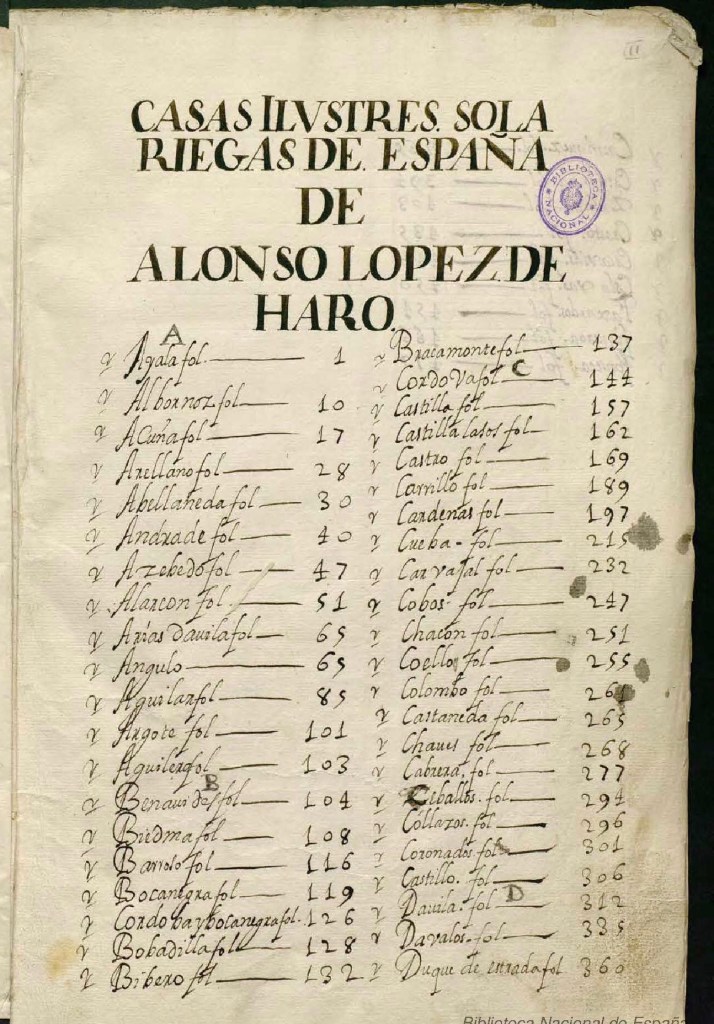 II
CASAS ILVSTRES. SOLA
RIEGAS DE. ESPAÑA
DE
ALONSO LOPEZ. DE
HARO.
BIBLIOTECA NACIONAL
A
y Ayala fol. 1
y Albornoz fol 10
y Acuña fol 17
y Arellano fol 28
y Abellaneda fol 30
y Andrade fol 40
y Azebedo fol 47
y Alarcon fol 51
y Arias davila fol 65
y Angulo 65
y Aguilar fol 85
y Argote fol 101
y Aguilera fol 103
B
y Benauides fol 104
y Biedma fol 108
y Barroso fol 116
y Bocanegra fol 119
y Cordoba y bocanegra fol. 126
y Bobadilla fol 128
y Bibero fol 132
y Bracamonte fol 137
C
y Cordova fol 144
y Castilla fol 157
y Castilla lasos fol 162
y Castro fol 169
y Carrillo fol 189
y Cardenas fol 197
y Cueba fol 215
y Carvajal fol 232
y Cobos fol 247
y Chacon fol 251
y Coello fol 255
y Colombo fol 261
y Castañeda fol 265
y Chaues fol 268
y Cabrera. fol 277
y Ceballos. fol 294
y Collazos. fol 296
y Coronados. fol 301
y Castillo. fol 306
D
y Davila. fol 312
y Davalos. fol 335
y Duque de estrada fol 360
Biblioteca Nacional de España